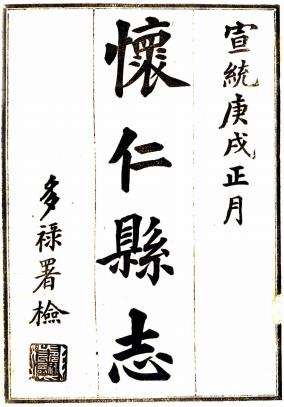 宣統庚戌正月
懷仁縣志
多祿署檢